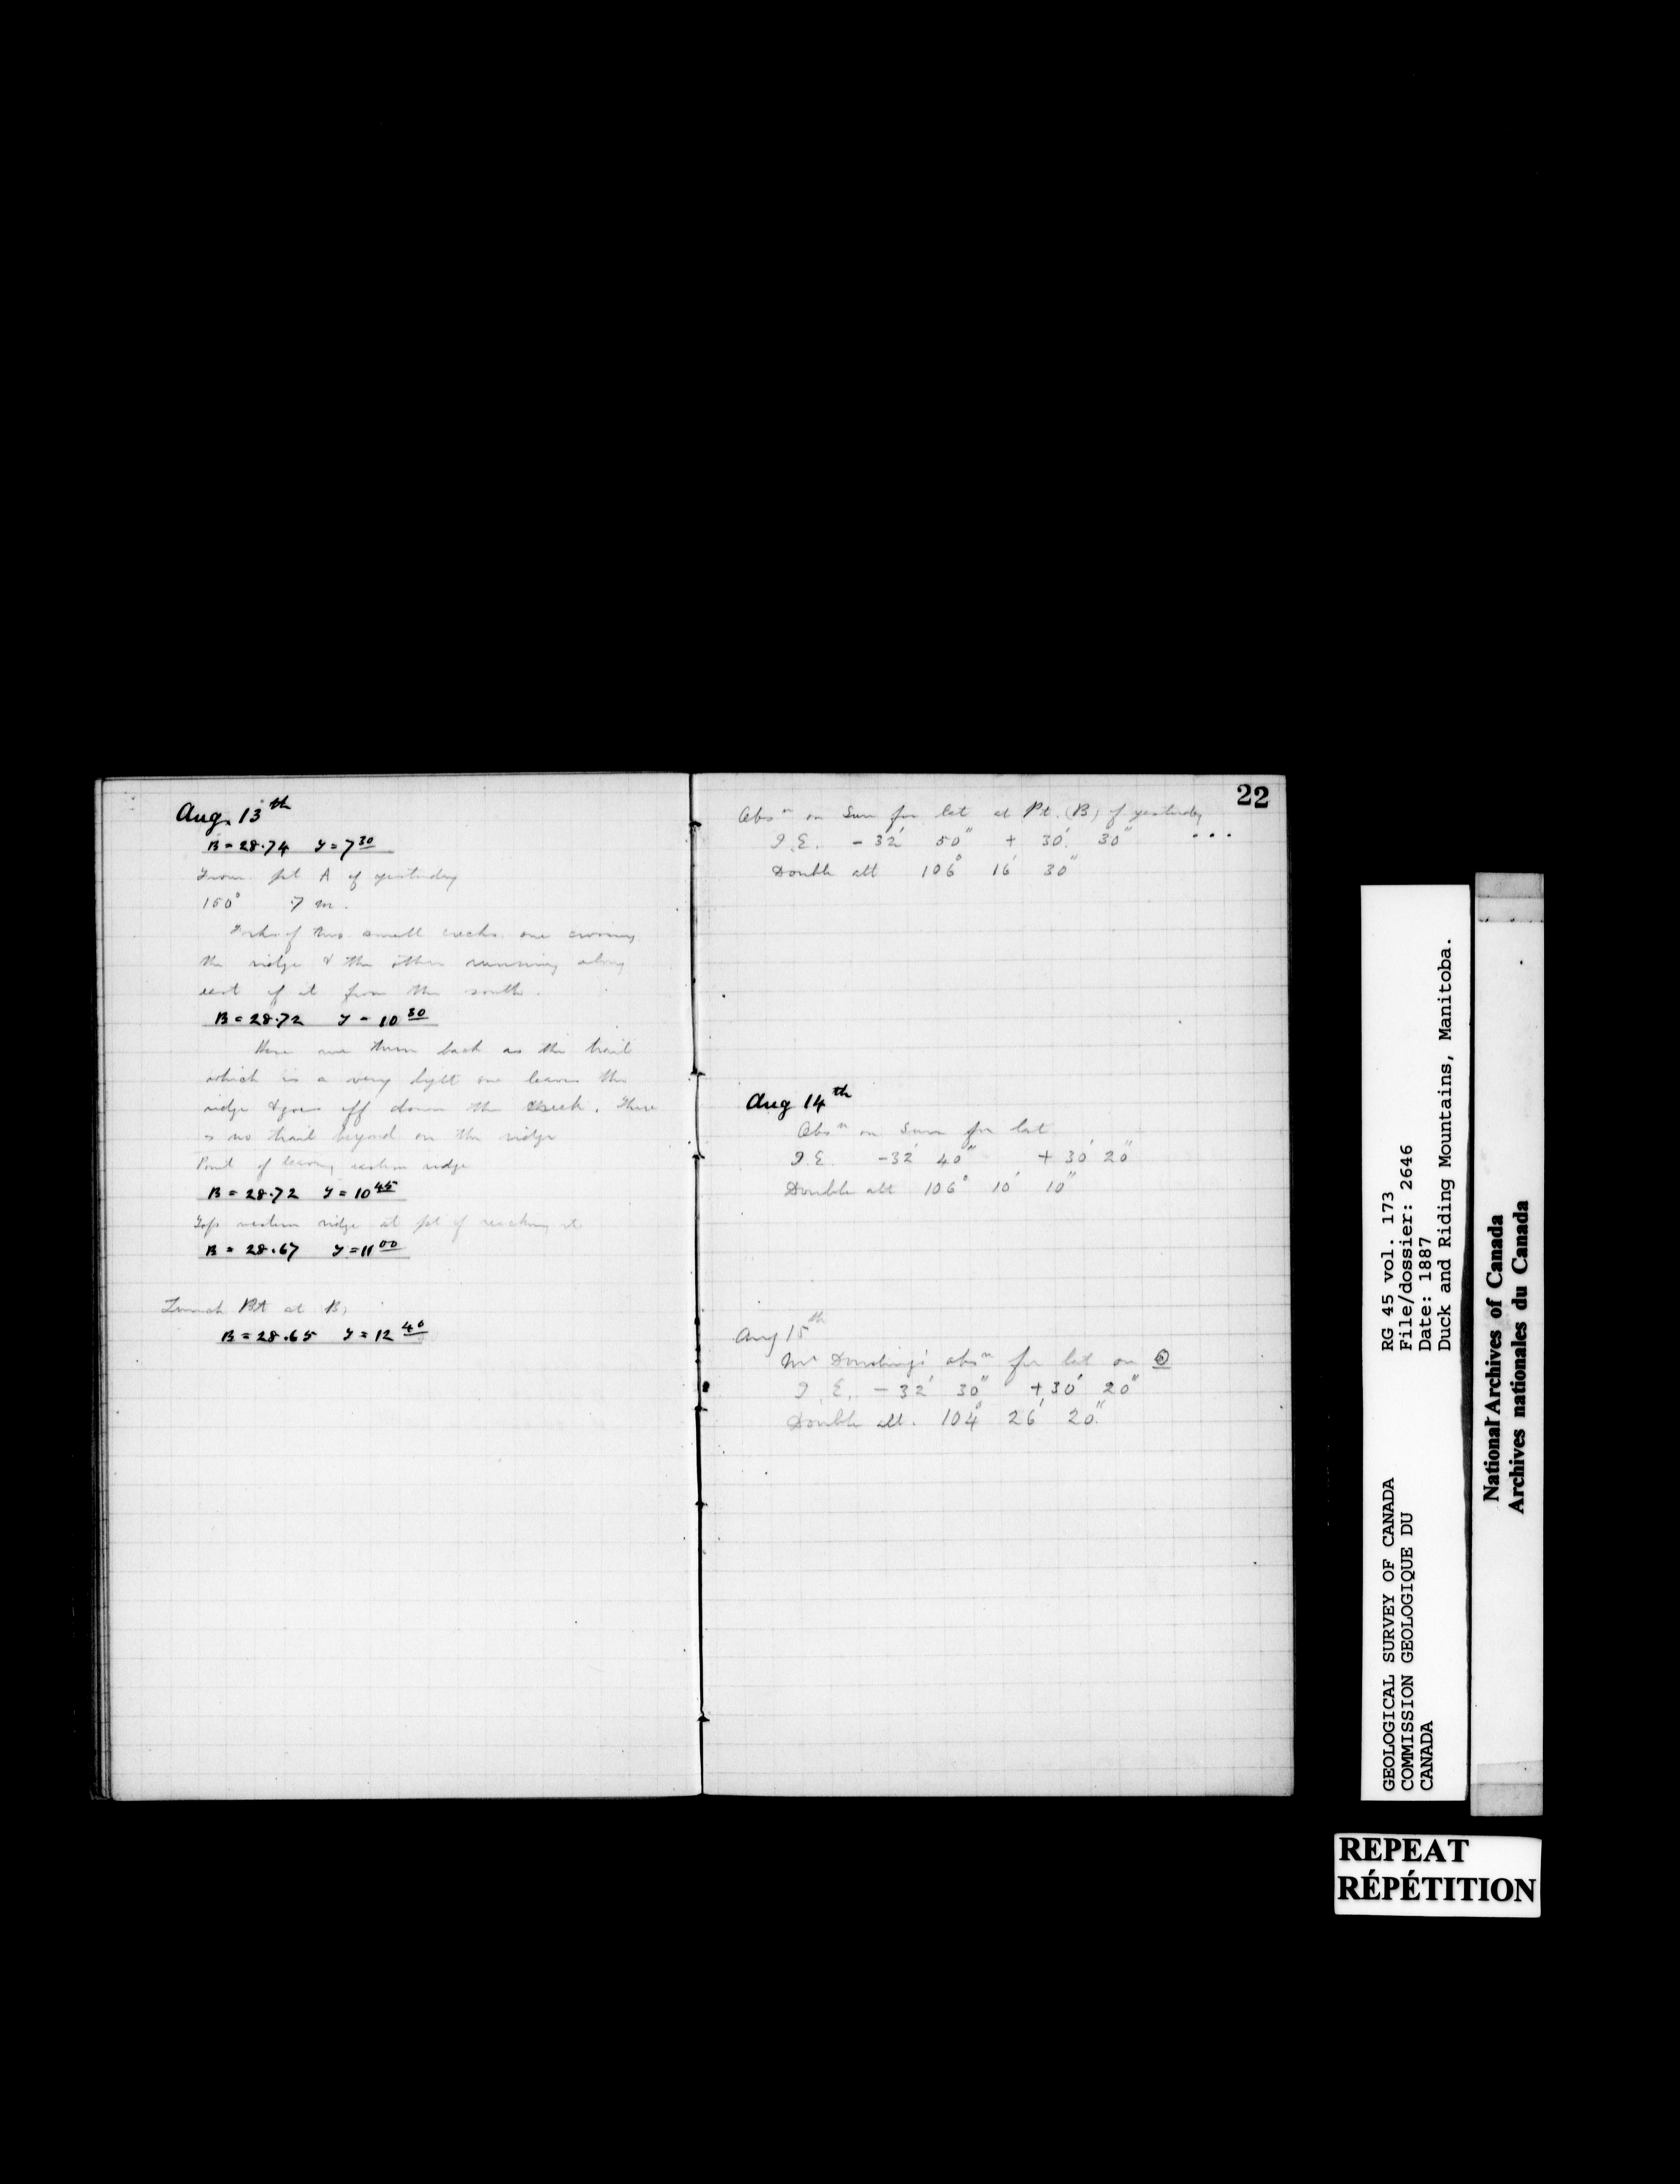 Aug. 13th
B = 28.74 T = 7 30
From pt A of yesterday
160° .7 m.
Forks of two small creeks one crossing
the ridge & the other running along
east of it from the south.
B = 28.72 T = 10 30
Here we turn back as the trail
which is a very light one leaves the
ridge & goes off down the creek. There
is no trail beyond on the ridge
Point of leaving eastern ridge
B = 28.72 T = 10 45
Top western ridge at pt of reaching it
B = 28.67 T = 11 00
Lunch Pt at B,
B = 28.65 T = 12 40
22
Obsn on Sun for lat at Pt. (B) of yesterday
I.E. - 32' 50" + 30' 30"
Double alt 106° 16' 30"
Aug 14th
Obsn on Sun for lat
I.E. - 32' 40" + 30' 20"
Double alt 106° 10' 10"
Aug 15th
Mr Dowling's obsn for lat on ☉
I.E. - 32' 30" + 30' 20"
Double alt. 104° 26' 20"
GEOLOGICAL SURVEY OF CANADA
COMMISSION GEOLOGIQUE DU
CANADA
RG 45 vol. 173
File/dossier: 2646
Date: 1887
Duck and Riding Mountains, Manitoba.
National Archives of Canada
Archives nationales du Canada
REPEAT
RÉPÉTITION